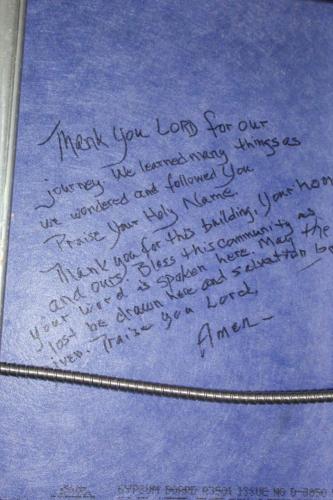 Thank you LORD for our
journey. We learned many things as
we wondered and followed You
Praise Your Holy Name.
Thank you for this building, Your hom
and ours. Bless this community as
your word is spoken here. May the
lost be drawn here and salvation be
iven. Praise you Lord,
Amen-
GYPSUM BOARD 93501 ISSUE NO D-3850